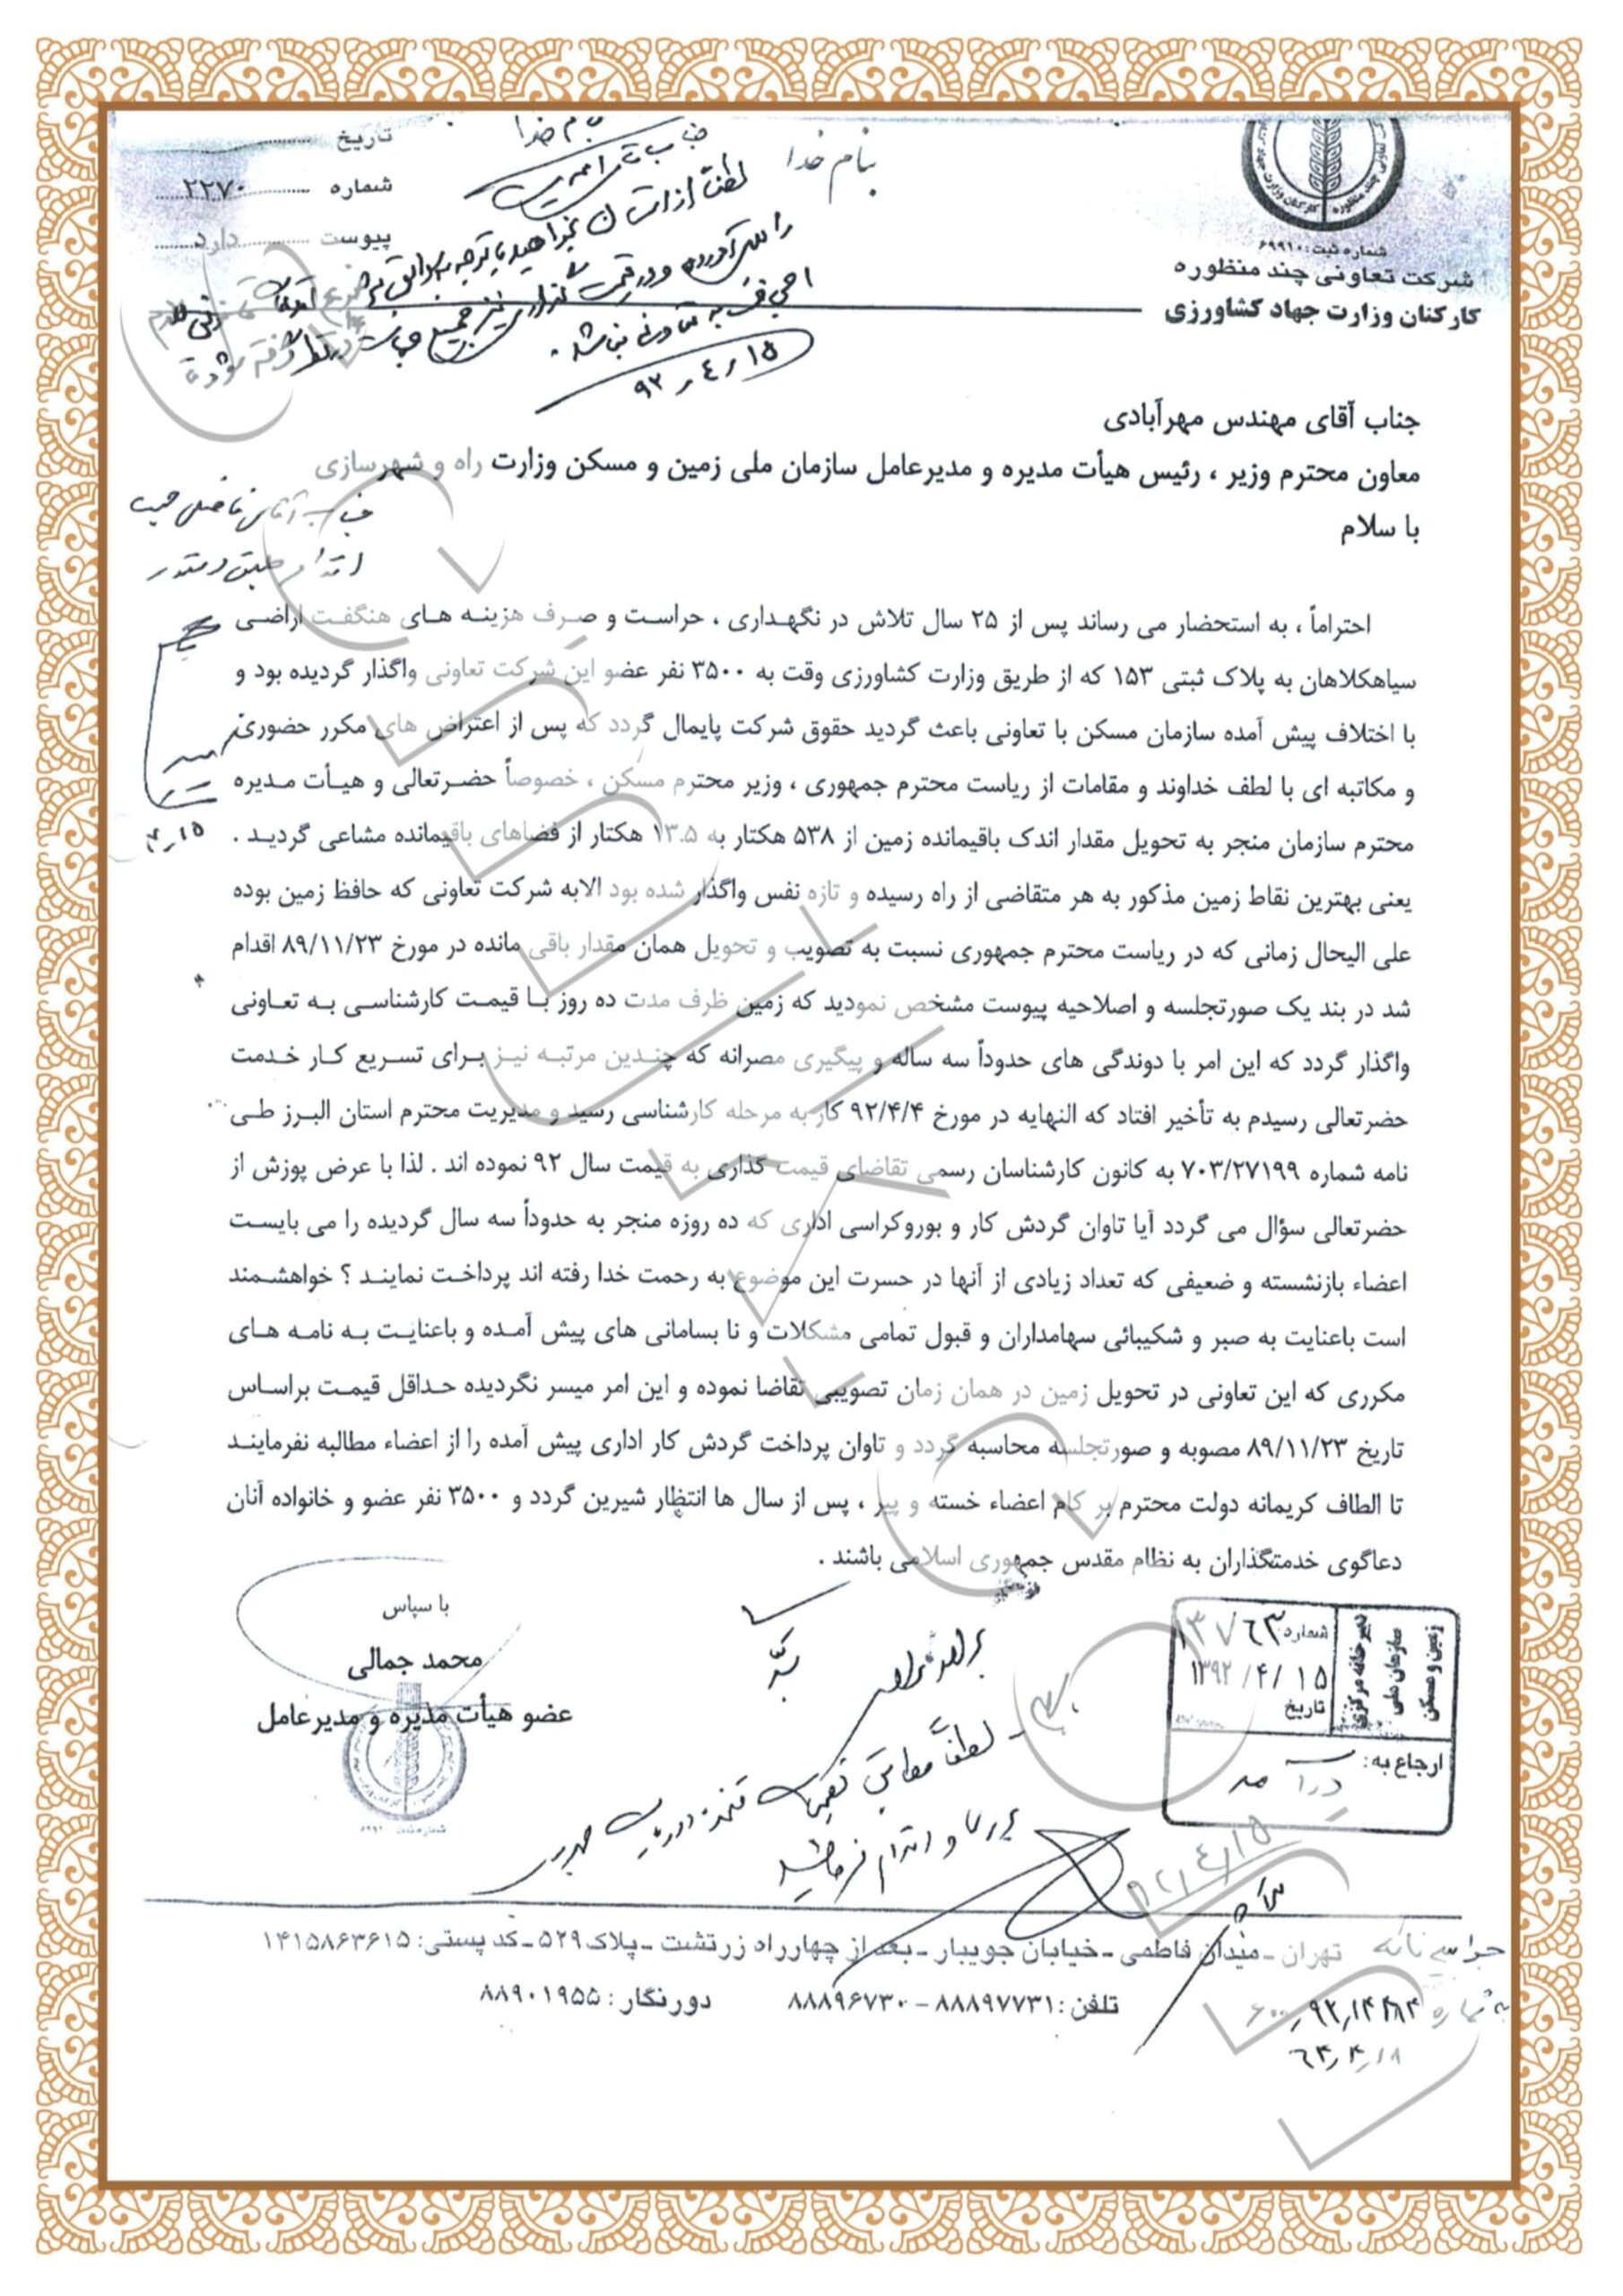 بنام خدا
تاریخ
شماره ۲۲۷۰
پیوست دارد
شماره ثبت: ۶۹۹۱۰
شرکت تعاونی چند منظوره
کارکنان وزارت جهاد کشاورزی
بنام خدا
لطفاً از استان بخواهید با توجه به سوابق
۹۲/۴/۱۵
جناب آقای مهندس مهرآبادی
معاون محترم وزیر ، رئیس هیأت مدیره و مدیرعامل سازمان ملی زمین و مسکن وزارت راه و شهرسازی
با سلام
جناب آقای
اقدام طبق دستور
احتراماً ، به استحضار می رساند پس از ۲۵ سال تلاش در نگهداری ، حراست و صرف هزینه های هنگفت اراضی
سیاهکلاهان به پلاک ثبتی ۱۵۳ که از طریق وزارت کشاورزی وقت به ۳۵۰۰ نفر عضو این شرکت تعاونی واگذار گردیده بود و
با اختلاف پیش آمده سازمان مسکن با تعاونی باعث گردید حقوق شرکت پایمال گردد که پس از اعتراض های مکرر حضوری
و مکاتبه ای با لطف خداوند و مقامات از ریاست محترم جمهوری ، وزیر محترم مسکن ، خصوصاً حضرتعالی و هیأت مدیره
محترم سازمان منجر به تحویل مقدار اندک باقیمانده زمین از ۵۳۸ هکتار به ۱۳.۵ هکتار از فضاهای باقیمانده مشاعی گردید .
یعنی بهترین نقاط زمین مذکور به هر متقاضی از راه رسیده و تازه نفس واگذار شده بود الابه شرکت تعاونی که حافظ زمین بوده
علی الیحال زمانی که در ریاست محترم جمهوری نسبت به تصویب و تحویل همان مقدار باقی مانده در مورخ ۸۹/۱۱/۲۳ اقدام
شد در بند یک صورتجلسه و اصلاحیه پیوست مشخص نمودید که زمین ظرف مدت ده روز با قیمت کارشناسی به تعاونی
واگذار گردد که این امر با دوندگی های حدوداً سه ساله و پیگیری مصرانه که چندین مرتبه نیز برای تسریع کار خدمت
حضرتعالی رسیدم به تأخیر افتاد که النهایه در مورخ ۹۲/۴/۴ کار به مرحله کارشناسی رسید و مدیریت محترم استان البرز طی
نامه شماره ۷۰۳/۲۷۱۹۹ به کانون کارشناسان رسمی تقاضای قیمت گذاری به قیمت سال ۹۲ نموده اند . لذا با عرض پوزش از
حضرتعالی سؤال می گردد آیا تاوان گردش کار و بوروکراسی اداری که ده روزه منجر به حدوداً سه سال گردیده را می بایست
اعضاء بازنشسته و ضعیفی که تعداد زیادی از آنها در حسرت این موضوع به رحمت خدا رفته اند پرداخت نمایند ؟ خواهشمند
است باعنایت به صبر و شکیبائی سهامداران و قبول تمامی مشکلات و نا بسامانی های پیش آمده و باعنایت به نامه های
مکرری که این تعاونی در تحویل زمین در همان زمان تصویبی تقاضا نموده و این امر میسر نگردیده حداقل قیمت براساس
تاریخ ۸۹/۱۱/۲۳ مصوبه و صورتجلسه محاسبه گردد و تاوان پرداخت گردش کار اداری پیش آمده را از اعضاء مطالبه نفرمایند
تا الطاف کریمانه دولت محترم بر کام اعضاء خسته و پیر ، پس از سال ها انتظار شیرین گردد و ۳۵۰۰ نفر عضو و خانواده آنان
دعاگوی خدمتگذاران به نظام مقدس جمهوری اسلامی باشند .
با سپاس
محمد جمالی
عضو هیأت مدیره و مدیرعامل
زمین و مسکن
سازمان ملی
دبیرخانه مرکزی
شماره: ۱۳۷۶۳
۱۳۹۲/۴/۱۵
تاریخ
ارجاع به:
تهران - میدان فاطمی - خیابان جویبار - بعد از چهارراه زرتشت - پلاک ۵۲۹ - کد پستی: ۱۴۱۵۸۶۳۶۱۵
تلفن: ۸۸۸۹۷۷۳۱ - ۸۸۸۹۶۷۳۰ دورنگار: ۸۸۹۰۱۹۵۵